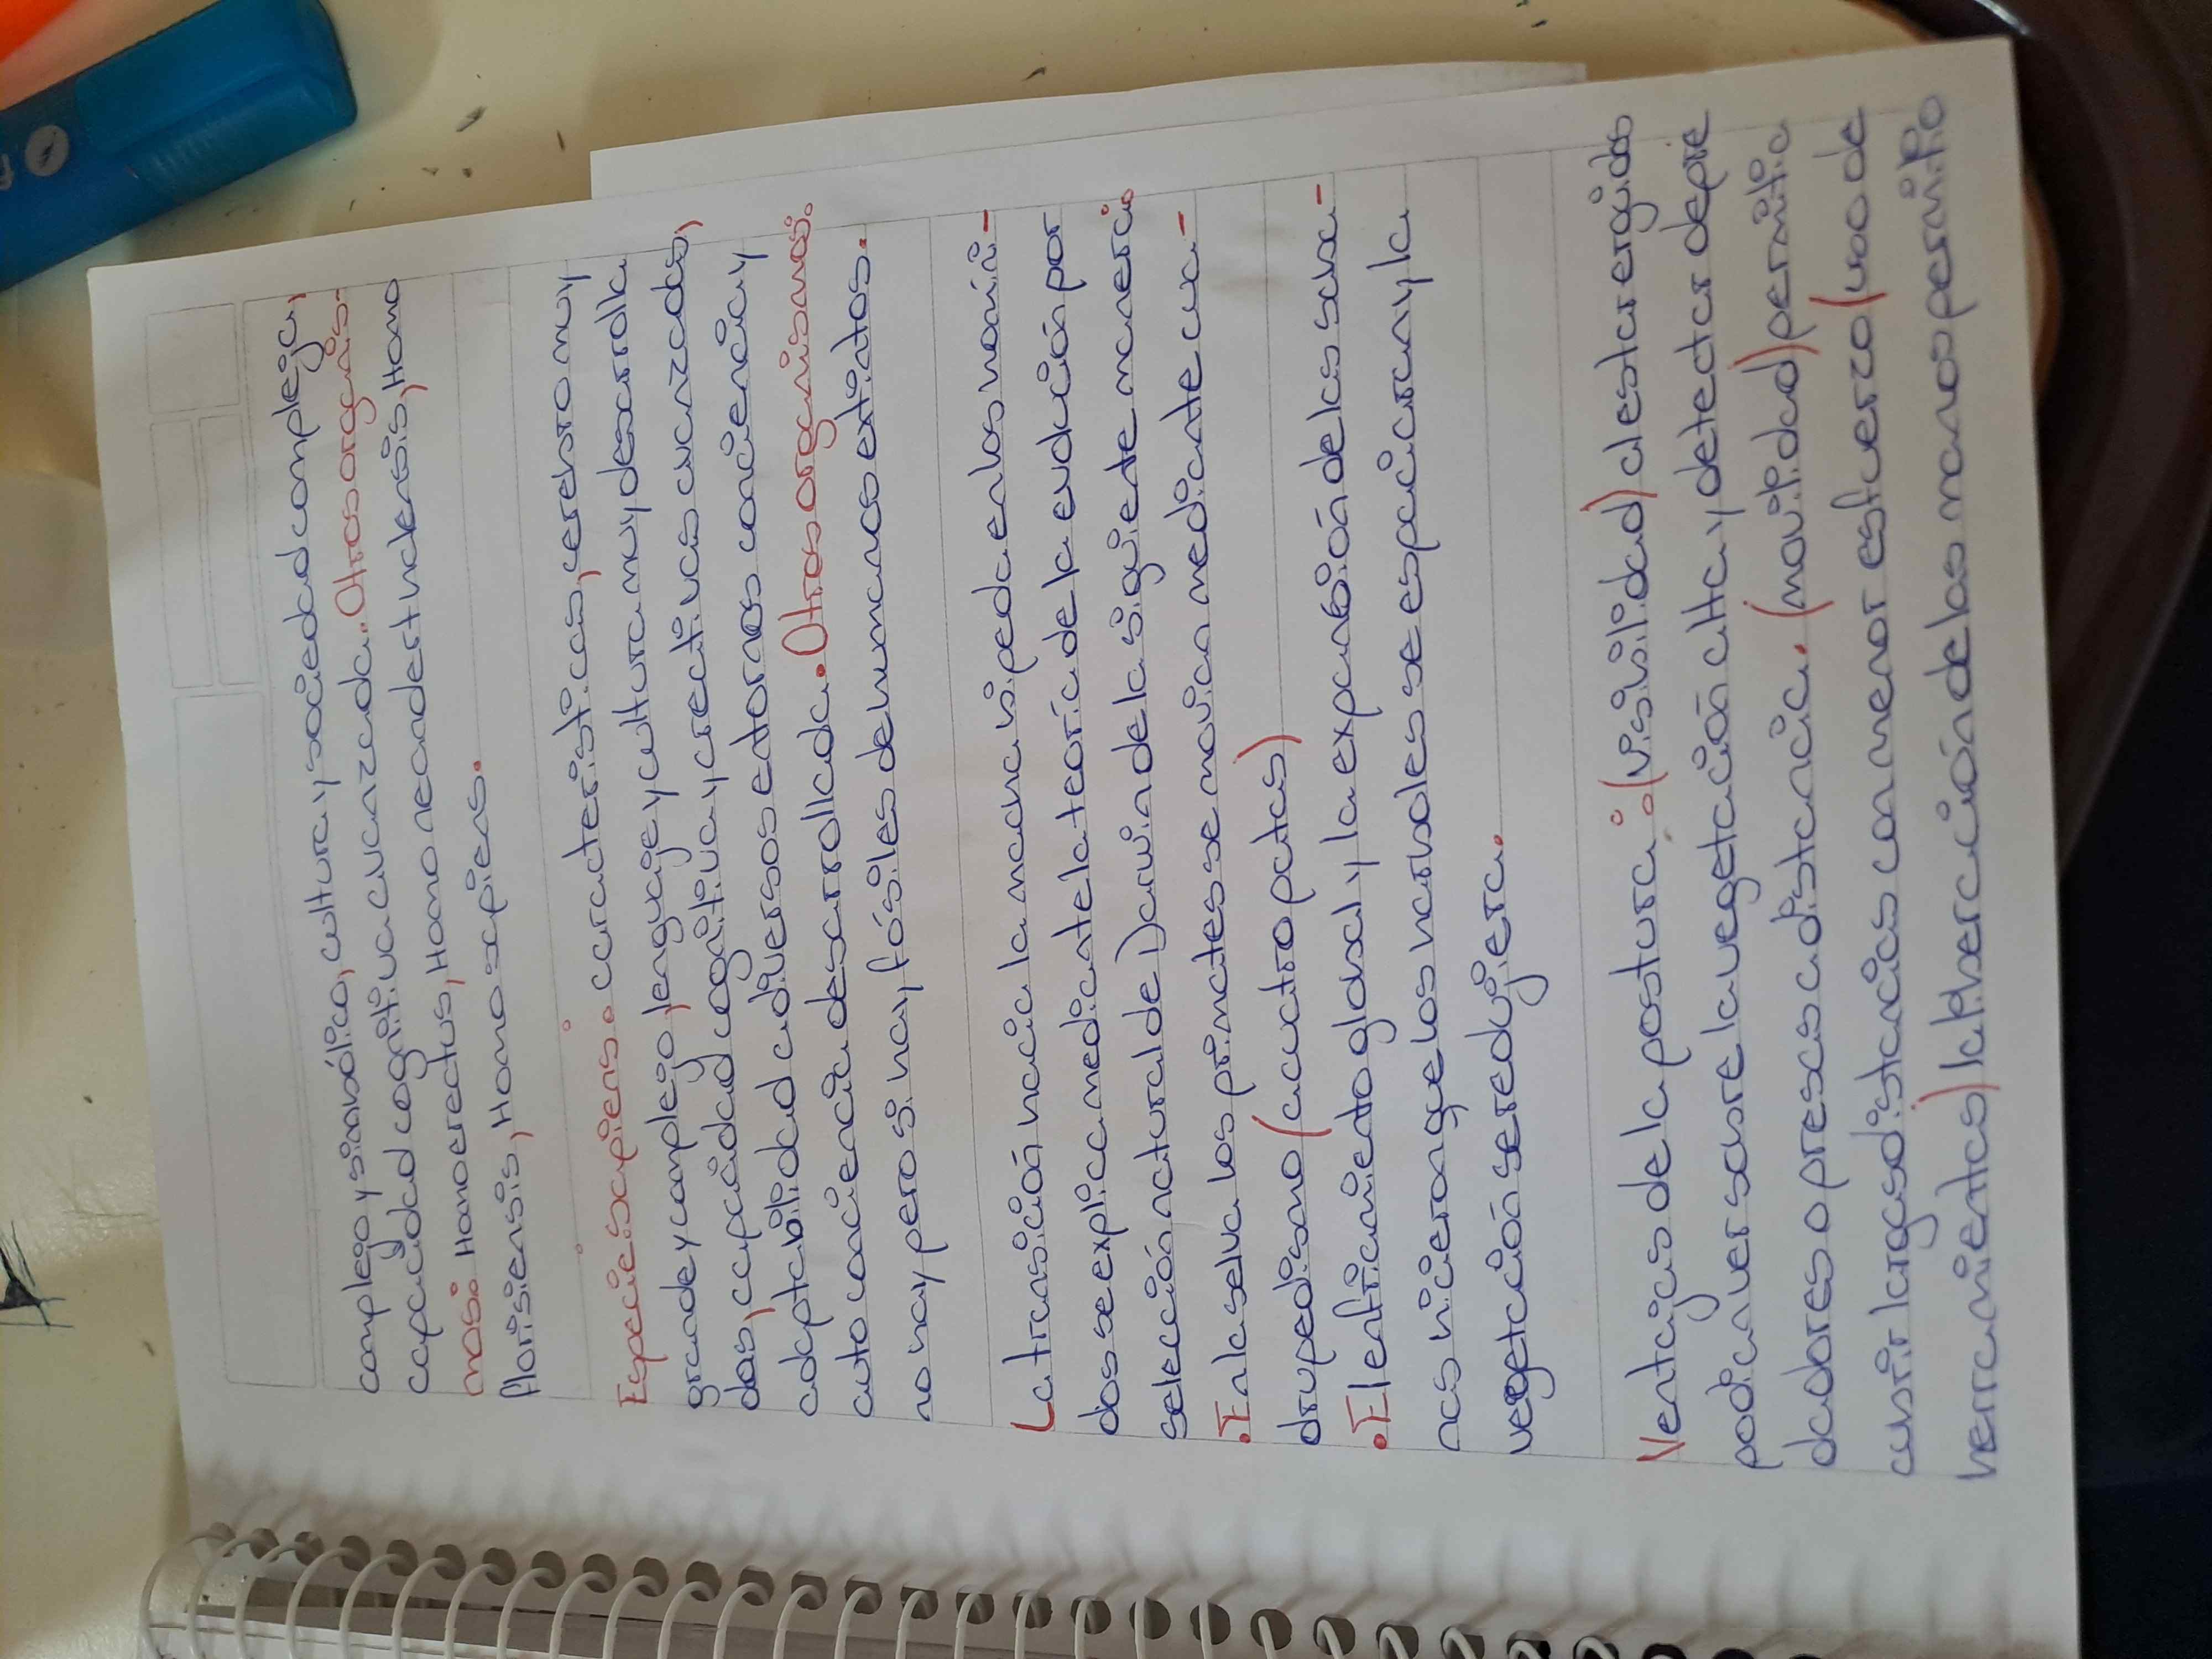 complejo y simbólico, cultura y sociedad compleja,
capacidad cognitiva avanzada. Otros organis-
mos: Homo erectus, Homo neadertndensis, Homo
florisiensis, Homo sapiens.
Especie: sapiens: características, cerebro muy
grande y complejo, lenguaje y cultura muy desarrolla
das, capacidad cognitiva y creativas avanzadas,
adaptabilidad a diversos entornos conciencia y
auto conciencia desarrollada. Otros organismos:
no hay pero si hay fósiles de humanos extintos.
La transición hacia la marcha bípeda en los homíni-
dos se explica mediante la teoría de la evolución por
selección natural de Darwin de la siguiente manera:
.En la selva los primates se movían mediante cua-
drupedismo (cuatro patas)
.El enfriamiento global y la expansión de las saba-
nas hicieron que los harboles se espaciaran y la
vegetación se redujera.
Ventajas de la postura: (visibilidad) al estar ergidos
podían ver sobre la vegetación alta y detectar depre
dadores o presas a distancia. (movilidad) permitía
cubrir largas distancias con menor esfuerzo (uso de
herramientas) la liberación de las manos permitio